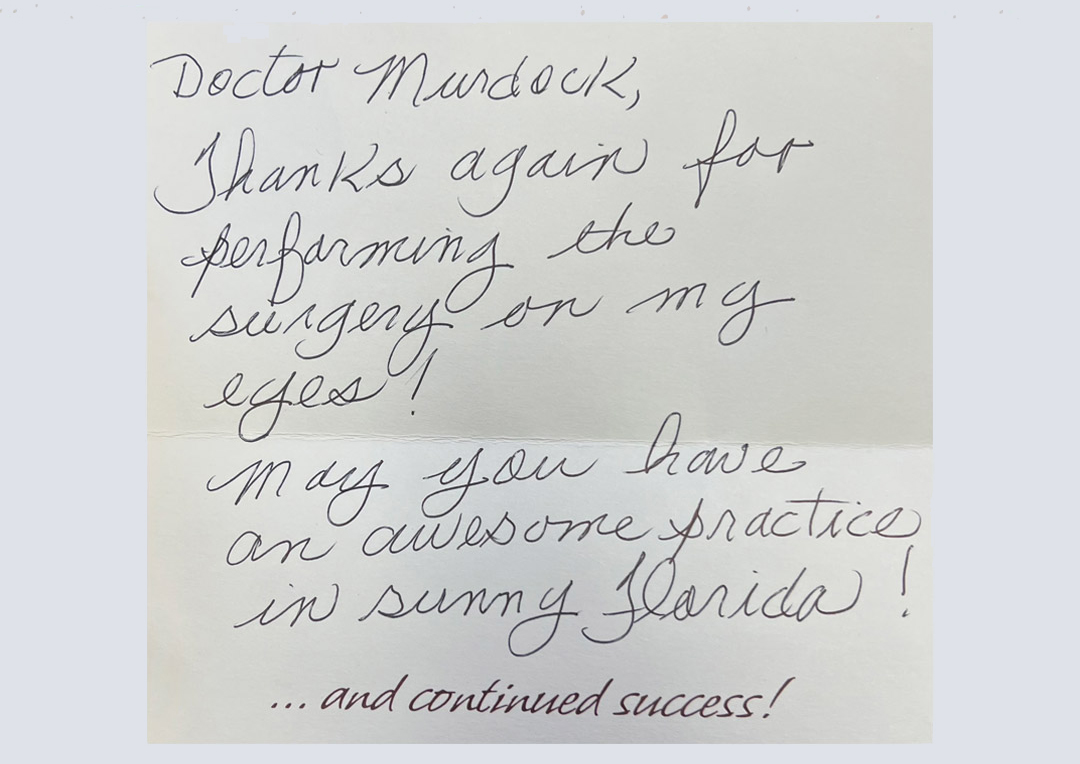 Doctor Murdock,
Thanks again for
performing the
surgery on my
eyes!
May you have
an awesome practice
in sunny Florida!
... and continued success!